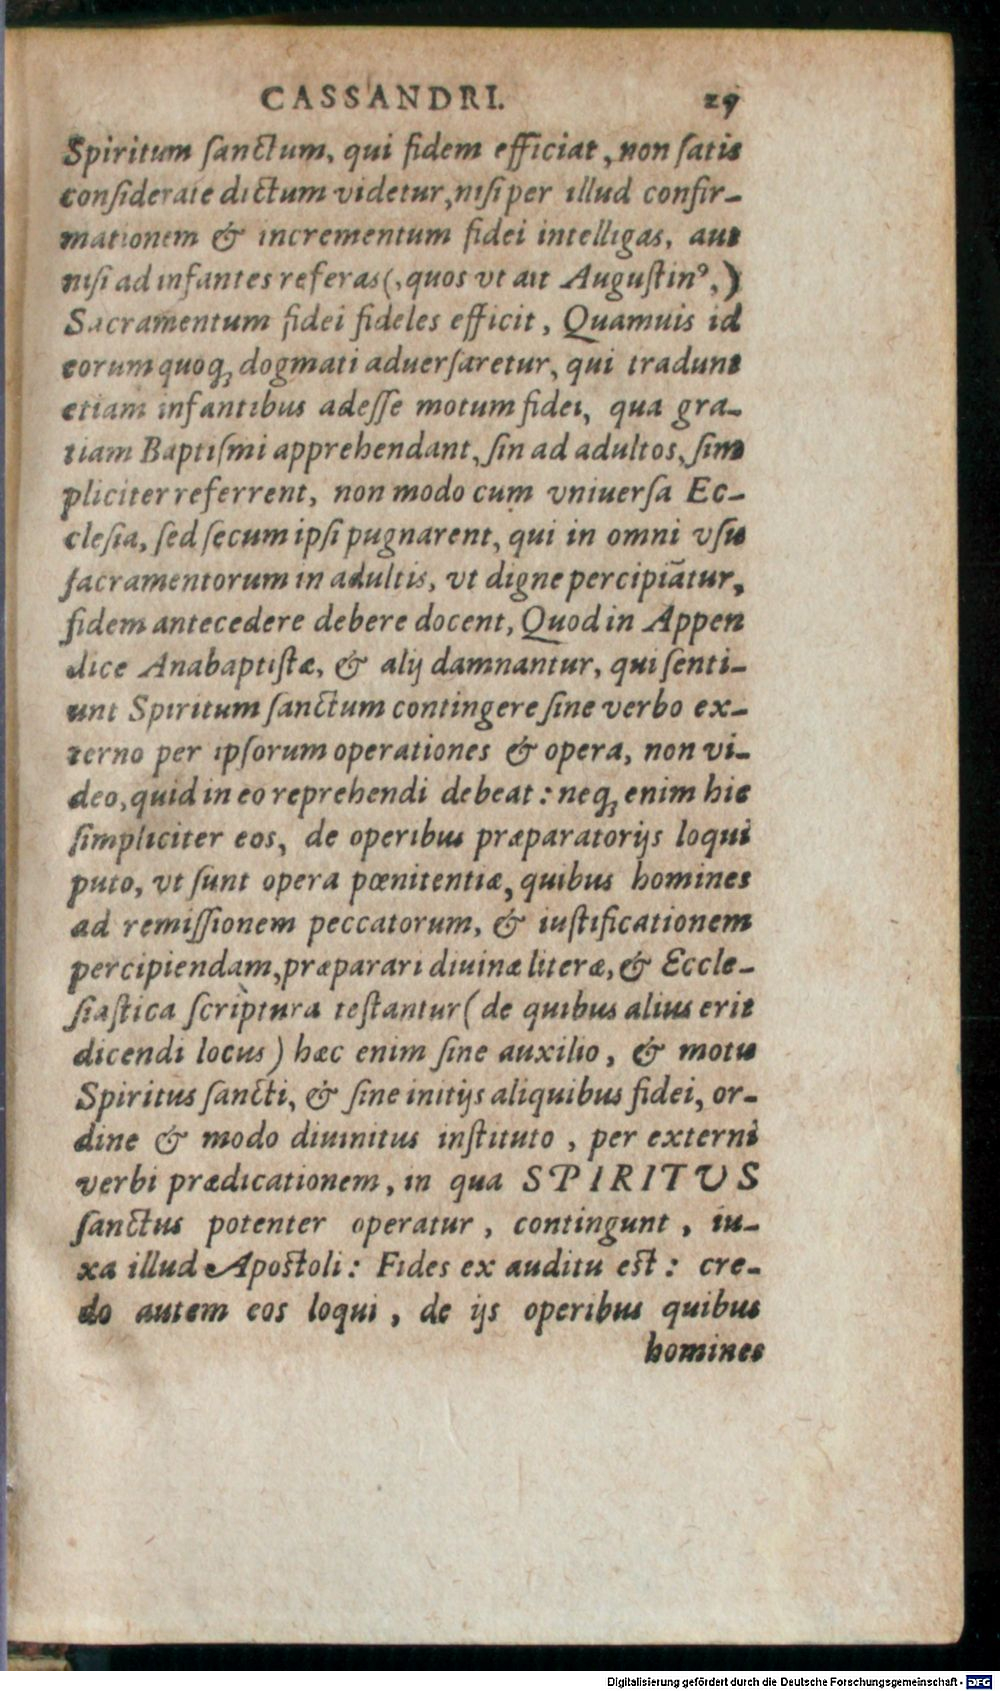 CASSANDRI. 29
Spiritum ſanctum, qui fidem efficiat, non ſatis
conſiderate dictum videtur, niſi per illud confir-
mationem & incrementum fidei intelligas, aut
niſi ad infantes referas (, quos vt ait Auguſtinꝰ,)
Sacramentum fidei fideles efficit, Quamuis id
eorum quoq; dogmati aduerſaretur, qui tradunt
etiam infantibus adeſſe motum fidei, qua gra-
tiam Baptiſmi apprehendant, ſin ad adultos, ſim
pliciter referrent, non modo cum vniuerſa Ec-
cleſia, ſed ſecum ipſi pugnarent, qui in omni vſu
ſacramentorum in adultis, vt digne percipiātur,
fidem antecedere debere docent, Quod in Appen
dice Anabaptiſtæ, & alij damnantur, qui ſenti-
unt Spiritum ſanctum contingere ſine verbo ex-
terno per ipſorum operationes & opera, non vi-
deo, quid in eo reprehendi debeat: neq; enim hic
ſimpliciter eos, de operibus præparatorijs loqui
puto, vt ſunt opera pœnitentiæ, quibus homines
ad remiſſionem peccatorum, & iuſtificationem
percipiendam, præparari diuinæ literæ, & Eccle-
ſiaſtica ſcriptura teſtantur (de quibus alius erit
dicendi locus) hæc enim ſine auxilio, & motu
Spiritus ſancti, & ſine initijs aliquibus fidei, or-
dine & modo diuinitus inſtituto, per externi
verbi prædicationem, in qua SPIRITVS
ſanctus potenter operatur, contingunt, iu-
xa illud Apoſtoli: Fides ex auditu eſt: cre-
do autem eos loqui, de ijs operibus quibus
homines
Digitalisierung gefördert durch die Deutsche Forschungsgemeinschaft - DFG